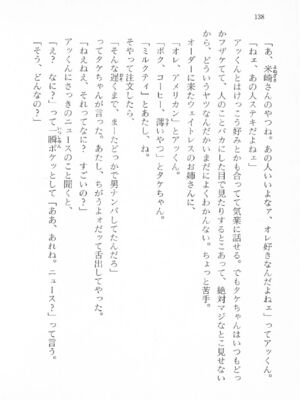 138
「あ、米崎さんのやつね。あの人いいよなァ、オレ好きなんだよねェ」ってアッくん。
「ねェ、あの人ステキだよねェ」
アッくんとはけっこう好みとかも合ってて気楽に話せる。でもタケちゃんはいつもどっ
かフザケてて、人のことバカにした目で見たりするとこあって、絶対マジなとこ見せない
から、どういうヤツなんだかいまだによくわかんない。ちょっと苦手。
オーダーに来たウェイトレスのお姉さんに、
「オレ、アメリカン」とアッくん。
「ボク、コーヒー、薄いやつ」とタケちゃん。
「ミルクティ」とあたし、ね。
そやって注文したら、
「そんな遅くまで、まーたどっかで男ナンパしてたんだろ」
ってタケちゃんが言った。あたし、ちがうよォだって舌出してやった。
「ねえねえ、それってなに？ すごいの？」
アッくんにさっきのニュースのこと聞くと、
「え？ なに？」って一瞬ポケッとして「ああ、あれね。ニュース？」って言う。
「そう、どんなの？」